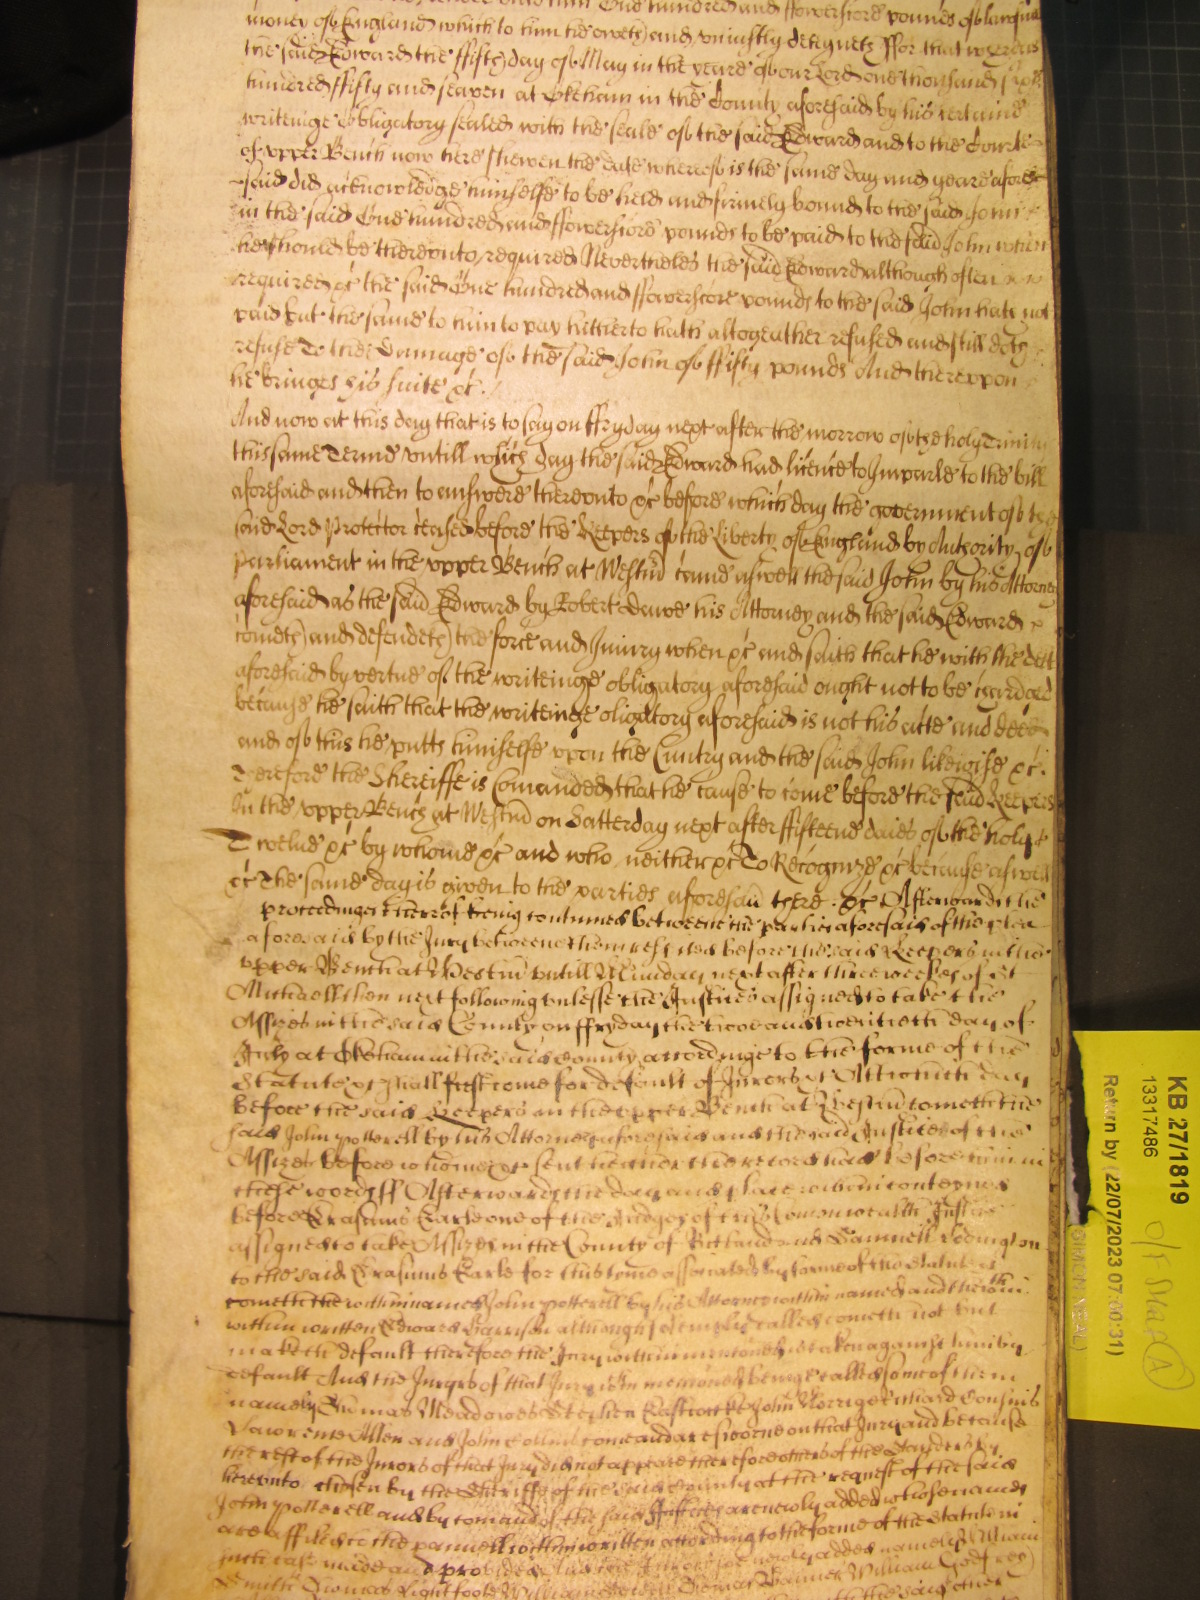 render unto him One hundred and ffowerscore pounds of lawfull
money of England which to him he oweth and uniustly deteyneth ffor that whereas
the said Edward the ffifth day of May in the yeare of our Lord one thousand six
hundred ffifty and seaven at Okeham in the County aforesaid by his certaine
writeinge obligatory sealed with the seale of the said Edward and to the Courte
of upper Bench now here shewen the date whereof is the same day and yeare afore
said did acknowledge himselfe to be held and firmely bound to the said John
in the said One hundred and ffowerscore pounds to be paid to the said John when
he should be thereunto required Nevertheles the said Edward although often
required &c the said One hundred and ffowerscore pounds to the said John hath not
paid but the same to him to pay hitherto hath altogeather refused and still doth
refuse To the Damage of the said John of ffifty pounds And thereupon
he bringes his suite &c.
And now at this day that is to say on ffryday next after the morrow of the holy Trinity
this same Terme untill which day the said Edward had licence to Imparle to the bill
aforesaid and then to answere thereunto &c before which day the government of the
said Lord Protector ceased before the Keepers of the Liberty of England by Authority of
Parliament in the upper Bench at Westm came aswell the said John by his Attorney
aforesaid as the said Edward by Robert Dawe his Attorney and the said Edward
cometh and defendeth the force and Iniury when &c and saith that he with the debt
aforesaid by vertue of the writeinge obligatory aforesaid ought not to be charged
because he saith that the writeinge oligatory aforesaid is not his acte and deed
and of this he putts himselfe upon the Cuntry and the said John likewise &c.
Therefore the Shereiffe is comanded that he cause to come before the said Keepers
in the upper Bench at Westm on Satterday next after ffifteene daies of the holy
Twelve &c by whome &c and who neither &c To Recognize &c because aswell
&c The same day is given to the parties aforesaid there &c Afterwards the
proceedinges thereof being continued betweene the parties aforesaid of the plea
aforesaid by the Jury betweene them respited before the said Keepers in the
upper Bench at Westm untill Munday next after three weekes of St
Michaell then next following unlesse the Justices assigned to take the
Assizes in the said County on ffryday the two and twentieth day of
July at Okeham in the said County accordinge to the forme of the
Statute &c shall first come for default of Jurors &c Att which day
before the said Keepers in the upper Bench at Westm cometh the
said John Potterell by his Attorney aforesaid and the said Justices of the
Assizes before whome &c sent hether their record had before them in
these words ss Afterwards the day and place within conteyned
before Erasmus Earle one of the Judges of this Comonwealth Justice
assigned to take Assizes in the County of Rutland and Samuell Lodington
to the said Erasmus Earle for this time associated by forme of the Statute &c
cometh the within named John Potterell by his Attorney within named and the
within written Edward Harrison although solemply called cometh not but
maketh default therefore the Jury within mentioned is taken against him by
default And the Jurors of that Jury within mentioned beinge called some of them
namely Thomas Meadowes Stephen John Richard Cousins
Lawrence Allen and John come and are sworne on that Jury and because
the rest of the Jurors of that Jury did not appeare therefore others of the standers by
hereunto chosen by the Sheriffe of the said County at the request of the said
John Potterell and by comand of the said Justices are newly added whose names
are affiled to the pannell within written according to the forme of the Statute in
such case made and provided And the Jurors soe newly added namely William
Smith Thomas Lightfoote William Thomas William Godfrey
KB 27/1819
13317486
Return by (22/07/2023 07:00:31)